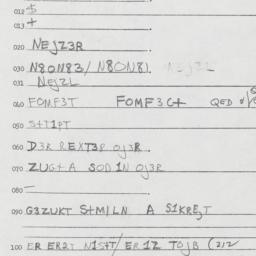 012 $
013 +
020 NEJZ3R
030 N8ON83/ N8ON8).
031 NEJZL
040 FOMF3T FOMF3G+ QED
050 S+T1PT
060 D3R REXT3R OJ3R
070 ZUG+A SOD1N OJ3R
080 —
090 G3ZUKT S+MILN A S1KREJT
100 ER ER2T N1S+T/ ER 1Z TOJB (212